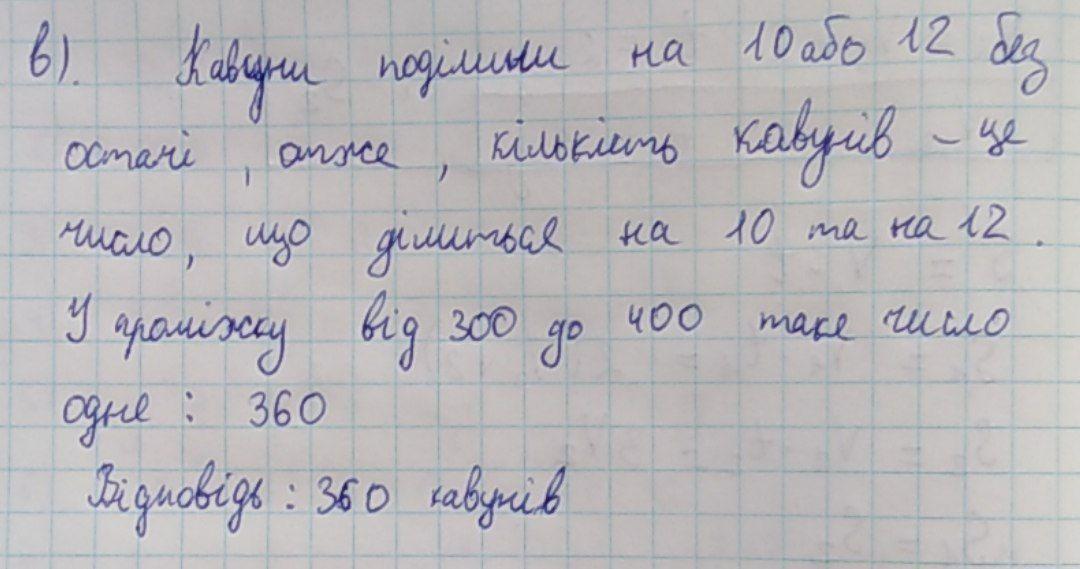 в). Кавуни поділили на 10 або 12 без
остачі, отже, кількість кавунів – це
число, що ділиться на 10 та на 12.
У проміжку від 300 до 400 таке число
одне : 360
Відповідь : 360 кавунів